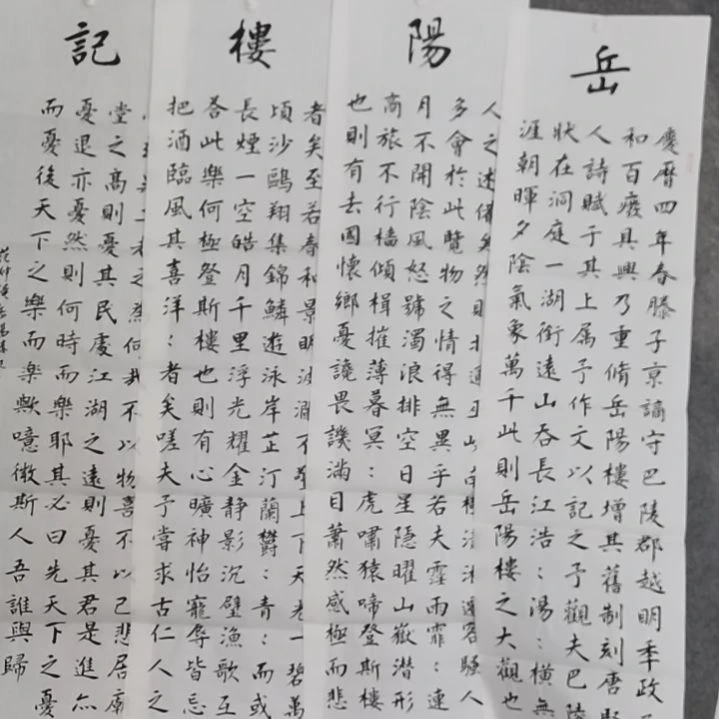 岳
慶曆四年春滕子京謫守巴陵郡越明年政
和百廢具興乃重脩岳陽樓增其舊制刻唐賢
人詩賦于其上属予作文以記之予觀夫巴陵
狀在洞庭一湖銜遠山吞長江浩:湯:橫無
涯朝暉夕陰氣象萬千此則岳陽樓之大觀也
陽
人之述備矣然則北通巫山南極瀟湘遷客騷人
多會於此覽物之情得無異乎若夫霪雨霏:連
月不開陰風怒號濁浪排空日星隱曜山嶽潛形
商旅不行檣傾楫摧薄暮冥:虎嘯猿啼登斯樓
也則有去國懷鄉憂讒畏譏滿目蕭然感極而悲
樓
者矣至若春和景明波瀾不驚上下天光一碧萬
頃沙鷗翔集錦鱗遊泳岸芷汀蘭欝:青:而或
長煙一空皓月千里浮光耀金静影沉璧漁歌互
荅此樂何極登斯樓也則有心曠神怡寵辱皆忘
把酒臨風其喜洋:者矣嗟夫予嘗求古仁人之
記
異二者之為何哉不以物喜不以己悲居廟
堂之高則憂其民處江湖之遠則憂其君是進亦
憂退亦憂然則何時而樂耶其必曰先天下之憂
而憂後天下之樂而樂歟噫微斯人吾誰與歸
范仲淹岳陽樓記